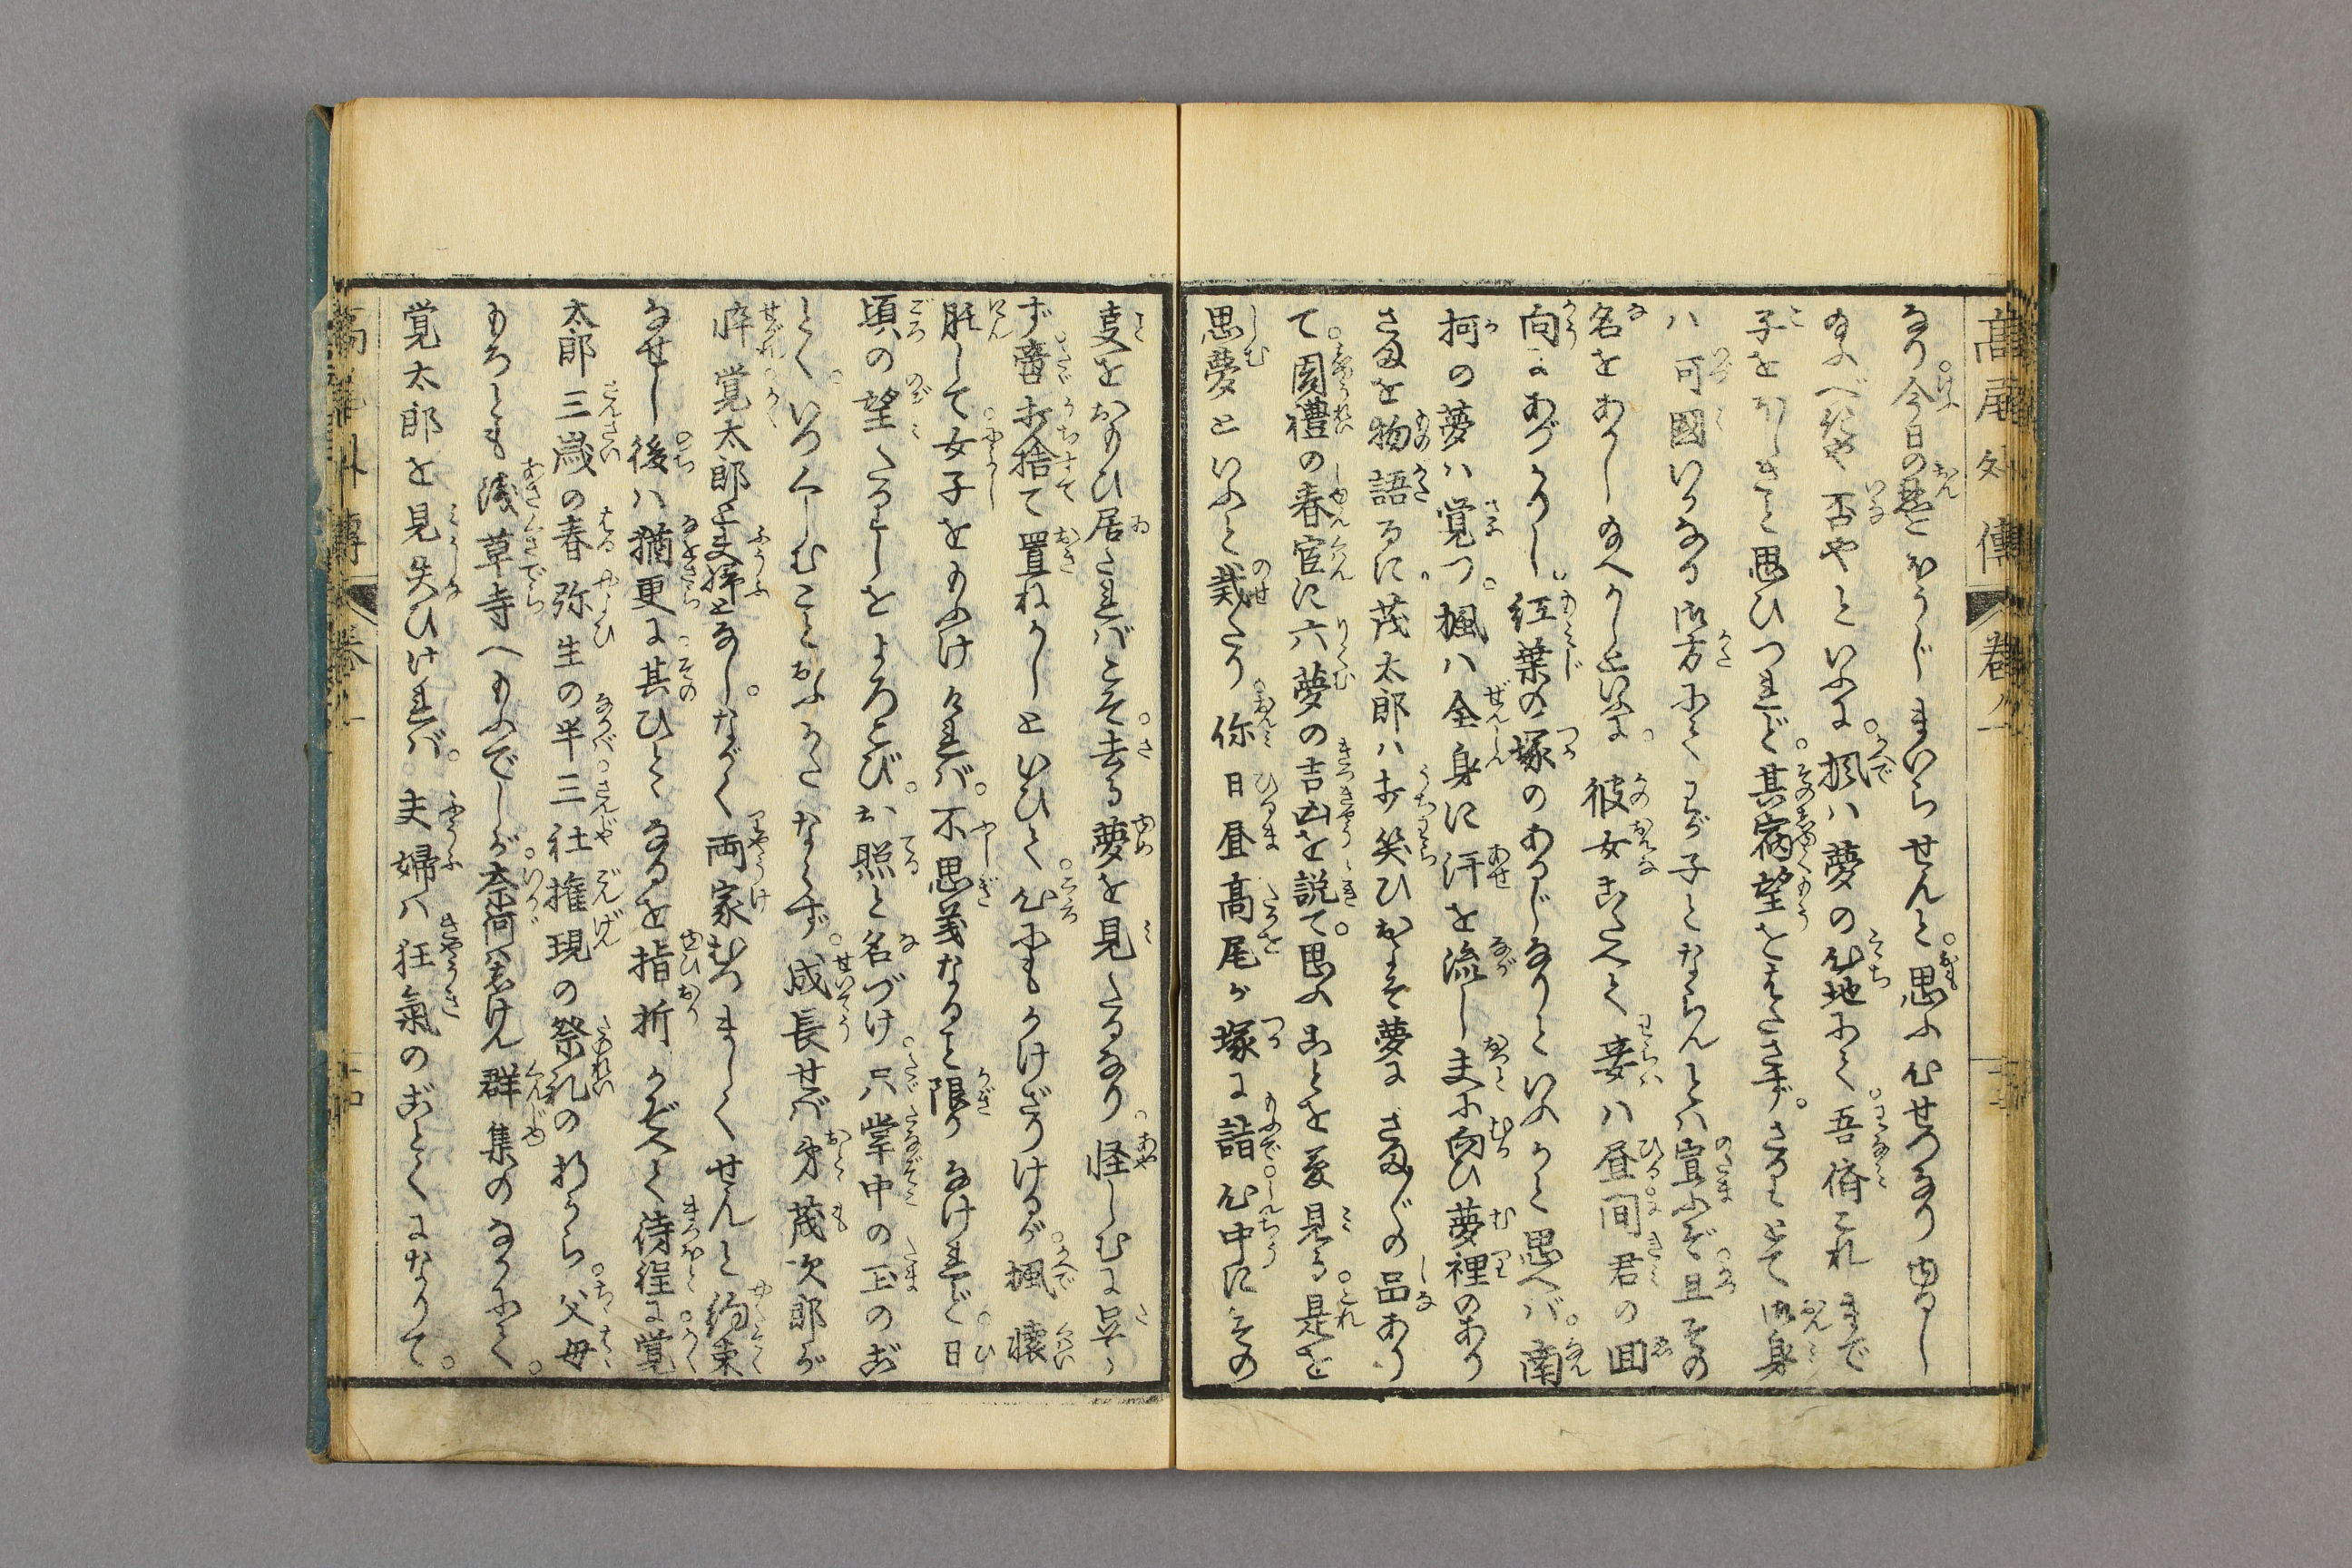 高尾外傳 巻ノ一
なり今日の恩をほうじまいらせんと思ふ心せつなりゆるし
給ふべきや否やといふに楓ハ夢の心地にて吾儕これまで
子をほしきと思ひつれど其病望をはたさずさるにても御身
ハ何国いかなる御方にてわが子とならんとハ宣ふぞ且その
名をあかし給へかしといふに彼女こたへて妾ハ昼間君の回
向にあづかりし紅葉の塚のあるじなりといふかと思へバ南
柯の夢ハ覚つ楓ハ全身に汗を流し夫に向ひ夢裡のあり
さまを物語るに茂太郎ハ打笑ひおよそ夢にさま〴〵の品あり
て周禮の春官に六夢の吉凶を説て思ふことを夢見る是を
思夢といふと載たり你日昼高尾が塚に詣心中にその
事をおもひ居たれバこそ去る夢を見たるなり怪しむに足ら
ず啻打捨て置ねかしといひて心にもかけざりけるが楓懐
妊して女子をもふけけれバ不思義なること限りなけれど日
頃の望たりしをよろこびお照と名づけ只掌中の玉のご
とくいつくしむことおふかたならず成長せバ弟茂次郎が
悴覚太郎と夫婦となしながく両家むつましくせんと約束
なせし後ハ猶更に其ひとゝなるを指折かぞへて待程に覚
太郎三歳の春弥生の半三社権現の祭礼の折から父母
もろとも浅草寺へもふでしが奈何ハしけん群集のなかにて
覚太郎を見失ひけれバ夫婦ハ狂氣のごとくになりて